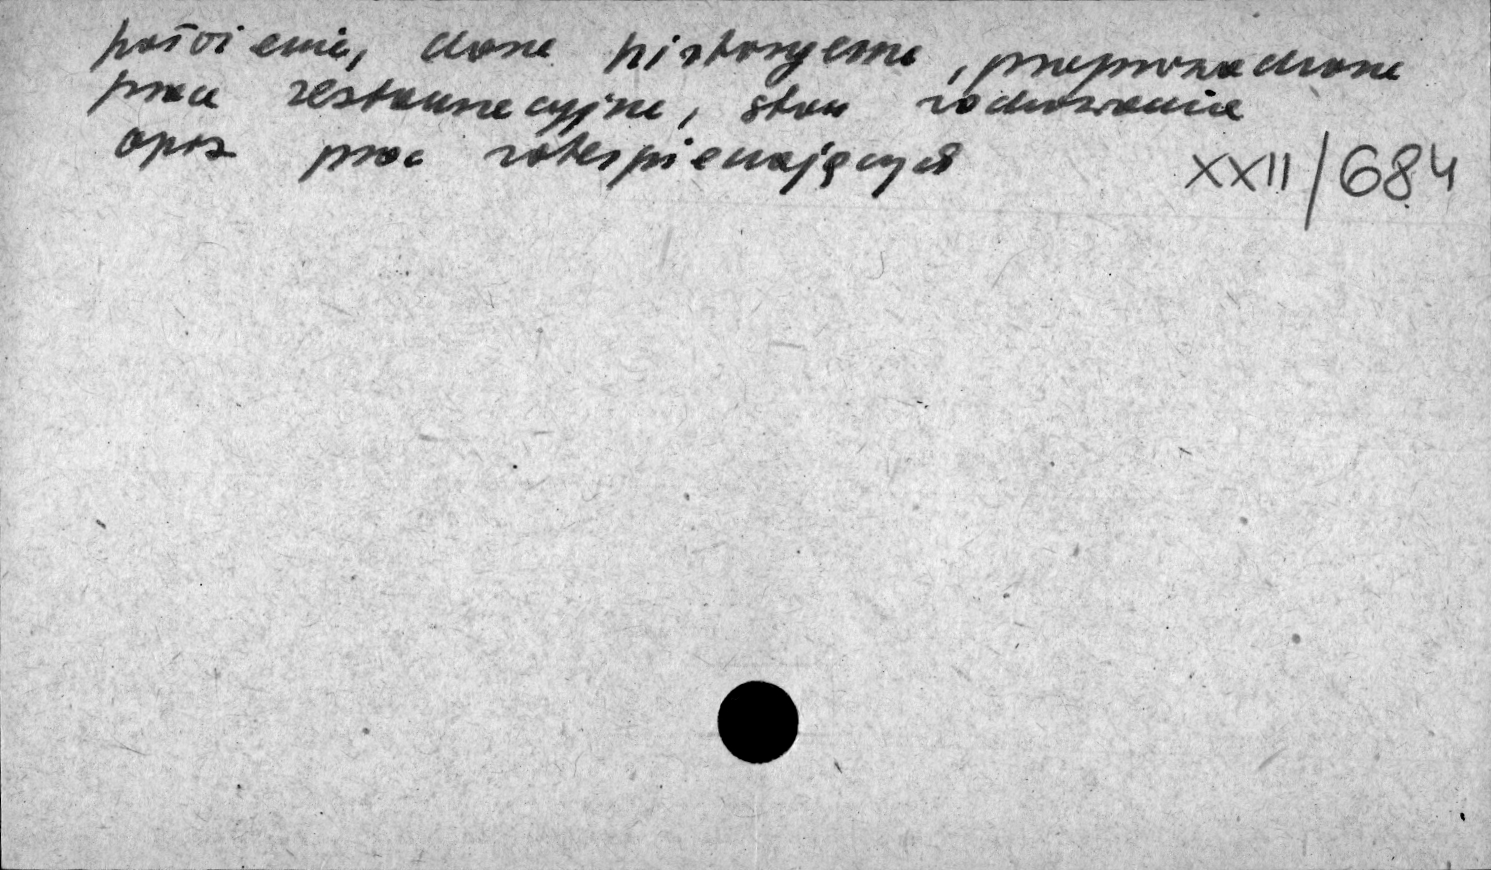 kościenie, dane historyczne, przeprowadzone
prace restauracyjne, stan zachowania
opis prac zabezpieczających
XXII/684